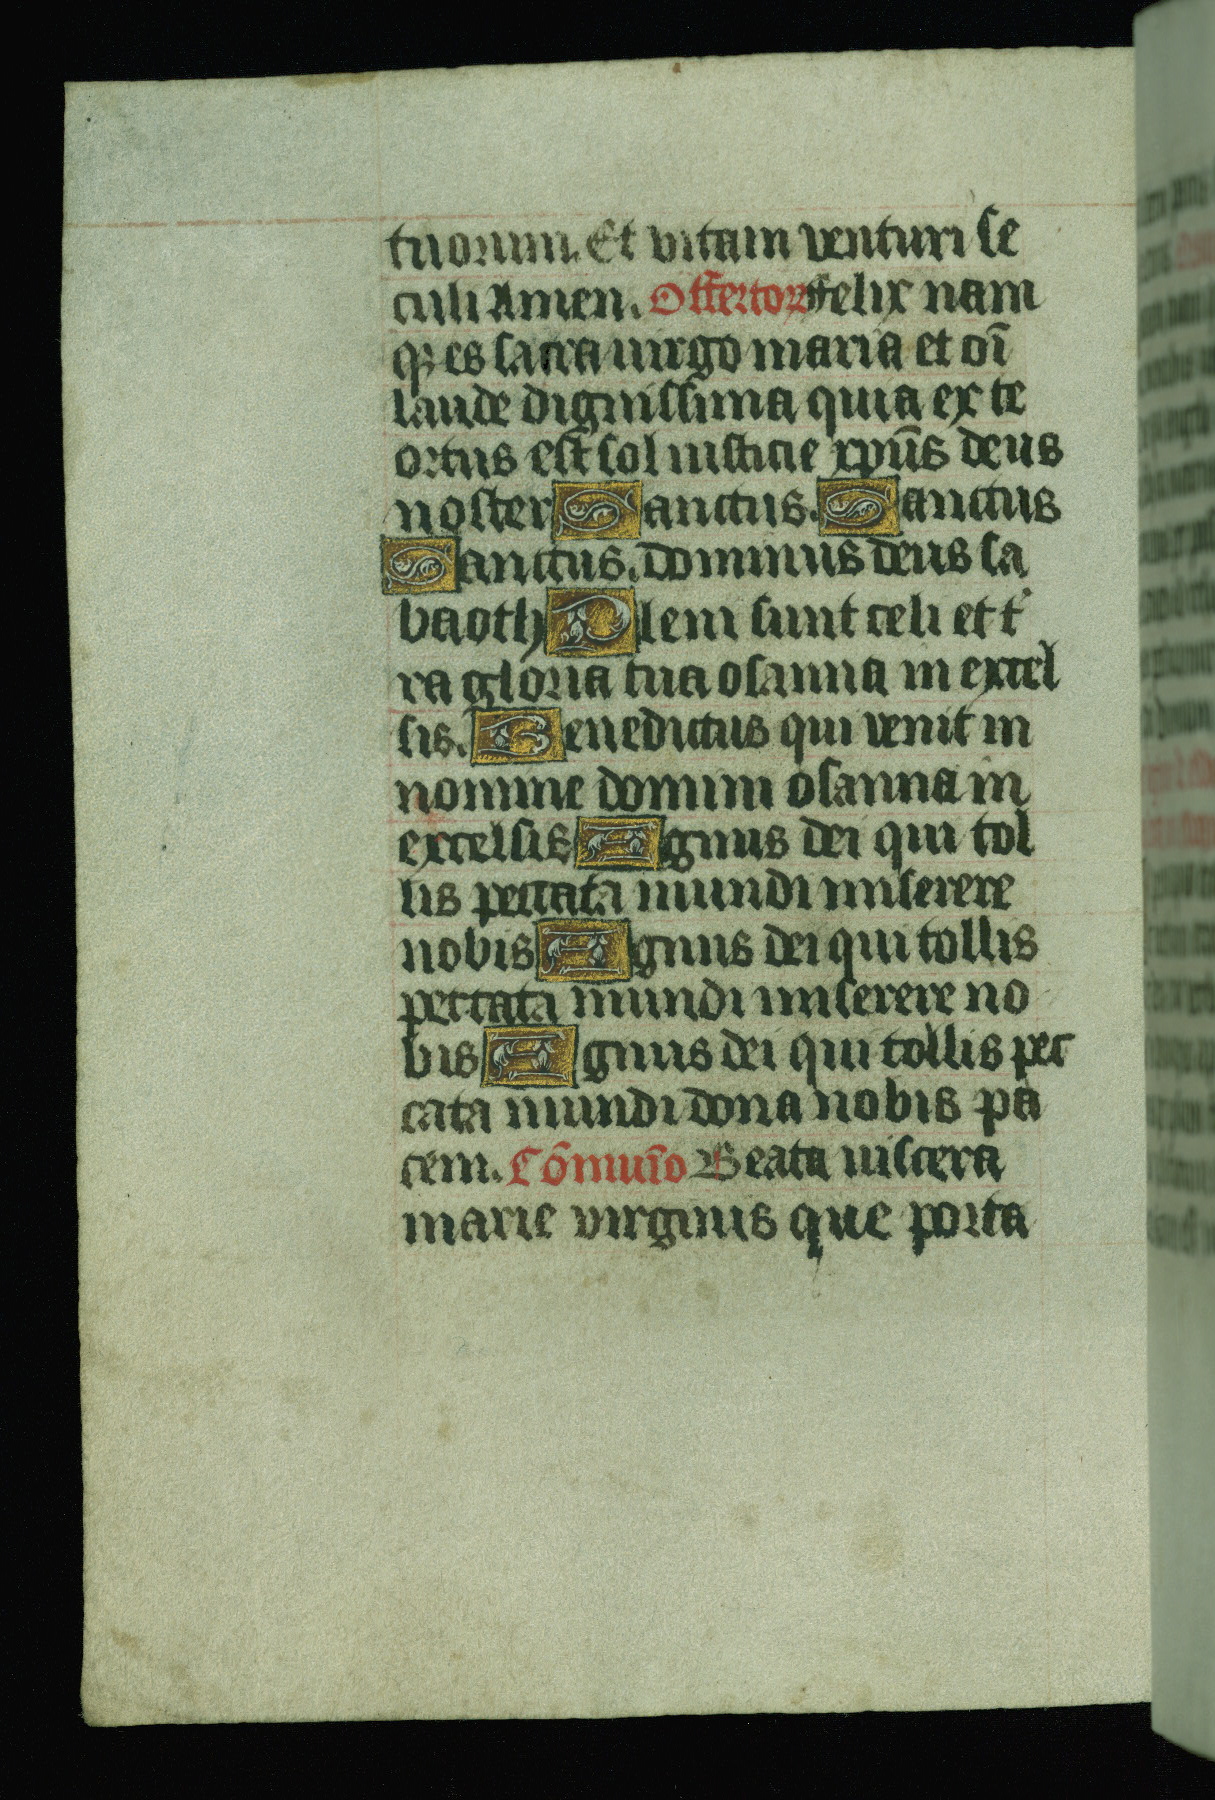 tuorum. Et vitam venturi se
culi Amen. Offertorꝝ felix nam
qꝫ es sacra uirgo maria et oī
laude dignissima quia ex te
ortus est sol iusticie xp̄us deus
noster Sanctus. Sanctus
Sanctus. dominus deus sa
baoth Pleni sunt celi et t̾
ra gloria tua osanna in excel
sis. Benedictus qui venit in
nomine domini osanna in
excelsis Agnus dei qui tol
lis peccata mundi miserere
nobis Agnus dei qui tollis
peccata mundi miserere no
bis Agnus dei qui tollis pec
cata mundi dona nobis pa
cem. Cōmuīo Beata uiscera
marie virginis que porta